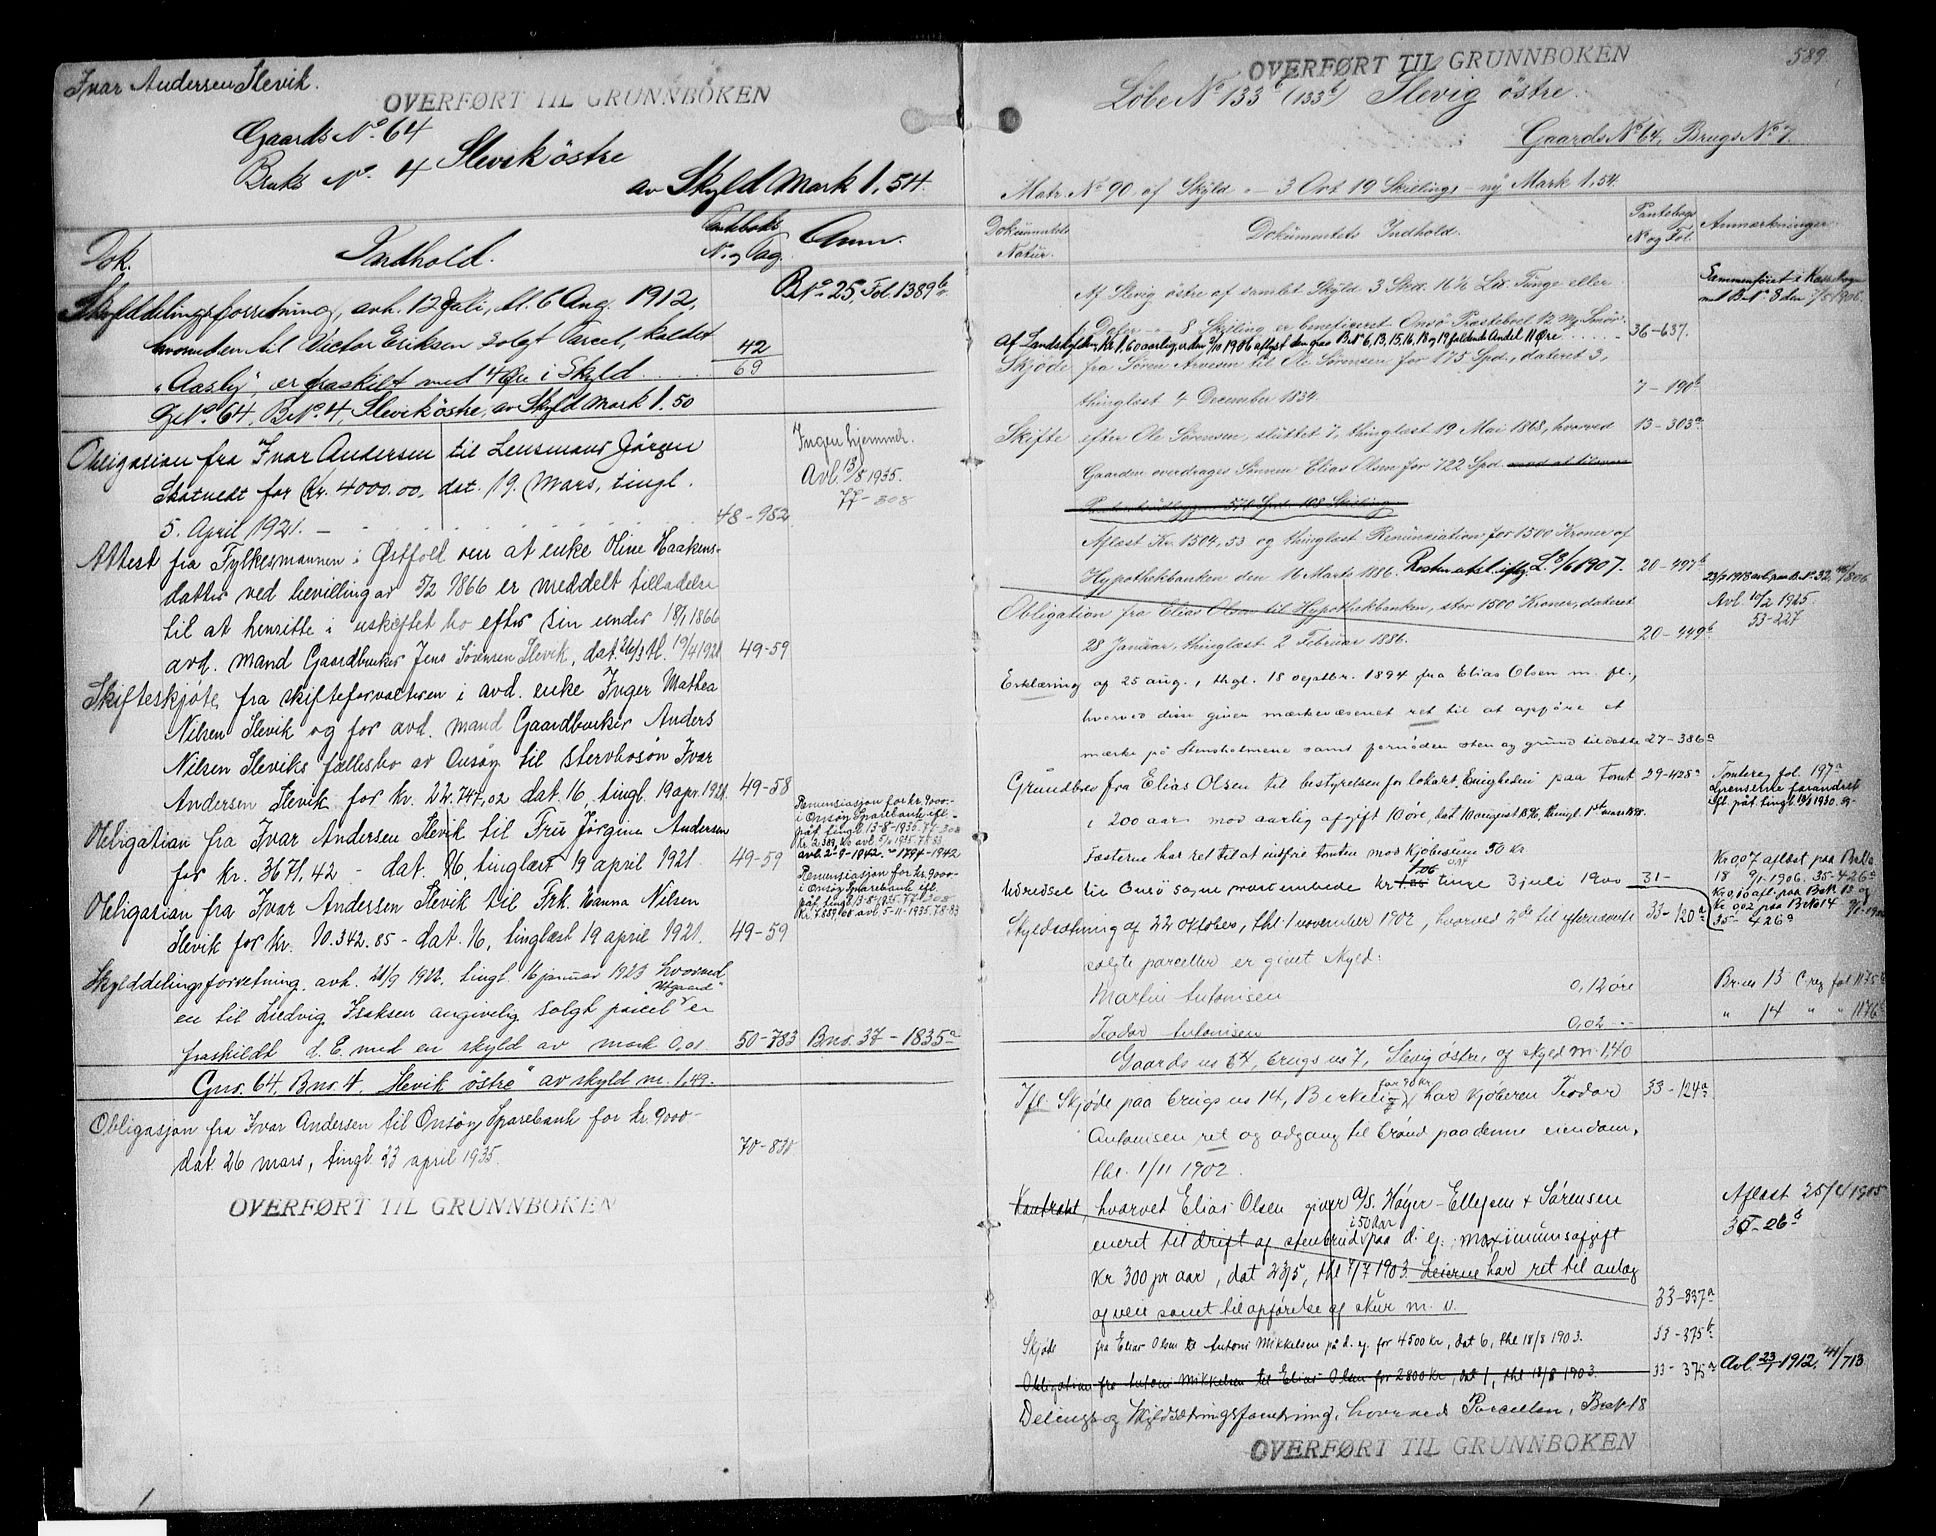 Ivar Andersen Slevik.
OVERFØRT TIL GRUNNBOKEN
Gaards No. 64
Bruks No. 4 Slevik østre
av Skyld Mark 1,54.
Dok. Indhold. Panteboks No. og Pag. Anm.
Skylddelingsforretning, avh. 12 Juli, tl. 6 Aug. 1912, B.No. 25, Fol. 1389b
hvorved en til Victor Eriksen solgt Parcel, kaldet
"Aasly", er fraskilt med 4 Øre i Skyld 42/69
G.No. 64, B.No. 4, Slevik østre, av Skyld Mark 1.50
Obligation fra Ivar Andersen til Lensmand Jørgen Ingen hjemmel.
Skatvedt for Kr. 4000.00, dat. 19. Mars, tingl. Avl. 13/8 1935.
5. April 1921. 48-952 77-308
Attest fra Fylkesmannen i Østfold om at enke Oline Haakens-
datter ved bevilling av 5/2 1866 er meddelt tilladelse
til at hensitte i uskiftet bo efter sin under 18/1 1866
avd. mand Gaardbruker Jens Sørensen Slevik, dat. 26/3 tl. 19/4 1921 49-59
Skifteskjøte fra skifteforvalteren i avd. enke Inger Mathea
Nilsen Slevik og for avd. mand Gaardbruker Anders
Nilsen Sleviks fællesbo av Onsøy til stervbosøn Ivar
Andersen Slevik for kr. 22.747,02 dat. 16, tingl. 19 apr. 1921. 49-58
Obligation fra Ivar Andersen Slevik til Fru Jørgine Andersen
for kr. 3671.42 - dat. 16, tinglæst 19 april 1921. 49-59
Renunsiasjon for kr. 9000.-
i Onsøy Sparebank ifl.
påt. tingl. 13-8-1935. 77-308
avl. 2-9-1942. 1794-1942
Obligation fra Ivar Andersen Slevik til Frk. Hanna Nilsen
Slevik for kr. 10.342.85 - dat. 16, tinglæst 19 april 1921. 49-59
Renunsiasjon for kr. 9000-
i Onsøy Sparebank ifl.
påt. tingl. 13-8-1935. 77-308
avl 5-11-1935. 78-93
Skylddelingsforretning, avh. 21/9 1922, tingl. 16 januar 1923 hvorved
en til Ludvig Isaksen angivelig solgt parcel "Utgaard" er
fraskildt d. E. med en skyld av mark 0,01 50-783 Bno. 37 - 1835a
Gno. 64, Bno. 4. "Slevik østre" av skyld m. 1,49.
Obligasjon fra Ivar Andersen til Onsøy Sparebank for kr. 9000-
dat. 26 mars, tingl. 23 april 1935. 70-830
OVERFØRT TIL GRUNNBOKEN
OVERFØRT TIL GRUNNBOKEN
589.
Løbe No. 133b (133b) Slevig østre.
Gaards No. 64, Brugs No. 7.
Matr. No. 90 af Skyld - 3 Ort 19 Skilling - ny Mark 1,54.
Dokumentets Natur. Dokumentets Indhold. Pantebogs No og Fol. Anmærkninger
Af Slevig østre af samlet Skyld 3 Skd. 16 1/2 Lid. Tunge eller
Daler - 8 Skilling er beneficeret Onsø Præstebol 12 Mg Smør
Af Landskylden, kr. 1.60 aarlig, er den 3/10 1906 afløst den paa B.No 6, 13, 15, 16, 18 og 19 faldende Andel 11 Øre 36-637.
Skjøde fra Søren Arvesen til Ole Sørensen for 175 Spd., dateret 3,
thinglæst 4 December 1834. 7-190b
Skifte efter Ole Sørensen, sluttet 7, thinglæst 19 Mai 1868, hvorved 13-303a
Gaarden overdrages Sønnen Elias Olsen for 722 Spd. med at tilsvare
570 Spd. 108 Skilling
Aflæst Kr. 1504,53 og thinglæst Renunciation for 1500 Kroner af
Hypothekbanken den 16 Marts 1886. 20-497b
Obligation fra Elias Olsen til Hypothekbanken, stor 1500 Kroner, dateret Avl 10/2 1925.
28 Januar, thinglæst 2 Februar 1886. 20-449b 53-227
Erklæring af 25 aug., thgl. 18 septbr. 1894 fra Elias Olsen m. fl.,
hvorved disse giver mærkevæsenet ret til at opføre et
mærke på Stensholmene samt fornøden sten og grund til dette 27-386a
Grundbrev fra Elias Olsen til bestyrelsen for lokalet Enigheden paa tomt 29-428a Tomtereg fol. 197a
i 200 aar mod aarlig afgift 10 øre, dat 10 august 1896, thingl. 1ste mars 1898. Grenserne forandret
Fæsterne har ret til at indfri tomten mod kjøbesum 50 kr.
Udredsel til Onsø sogneprestembede kr 1.06 tinge 3 juli 1900 31-
Skyldsetning af 22 oktober, thl 1 november 1902, hvorved 2de til efternævnte 33-120a
solgte parceller er givet skyld:
Martin Antonisen 0,12 øre Br.no 13 C reg fol 1175b
Teodor Antonisen 0,02 -- " 14 " " 1176b
Gaards no 64, Brugs no 7, Slevig østre, af skyld m. 1,40
Ifl Skjøde paa Brugs no 14, Birkelig for 90 kr har kjøberen Teodor 33-124a
Antonisen ret og adgang til brønd paa denne eiendom,
thl. 1/11 1902.
Kontrakt, hvorved Elias Olsen giver A/S. Høyer-Ellefsen & Sørensen Aflæst 25/4 1905
eneret til drift af stenbrud i 50 aar paa d. ej. maximumsafgift
Kr 300 pr aar, dat 23/5, thl 7/7 1903. Leierne har ret til anlæg
og veie samt til opførelse af skur m. v. 33-337a
Skjøde fra Elias Olsen til Antoni Mikkelsen på d. ej. for 4500 kr, dat 6, thl 18/8 1903. 33-375b
Obligation fra Antoni Mikkelsen til Elias Olsen for 2800 kr, dat 1, thl 18/8 1903. 33-375a Avl. 1912, 41/713
Delings og Skyldsætningsforretning, hvorved Parcellen, B.No 18
OVERFØRT TIL GRUNNBOKEN